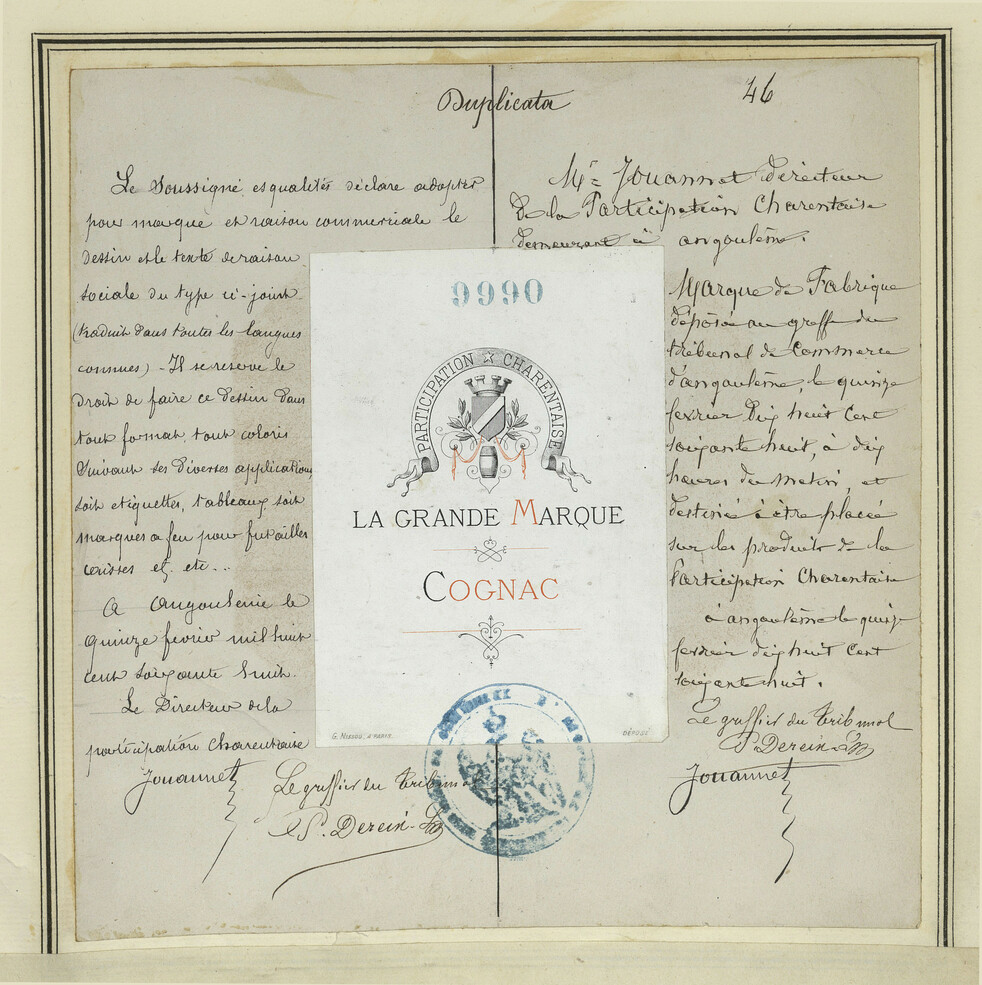 Duplicata
46
Le Soussigné esqualités déclare adopter
pour marque et raison commerciale le
dessin et le texte de raison
sociale du type ci-joint
(traduit dans toutes les langues
connues) - Il se reserve le
Droit de faire ce dessin dans
tout format, tout coloris
suivant ses diverses applications
soit etiquettes, tableaux soit
marques a feu pour futailles
caisses et. etc...
A Angoulême le
quinze fevrier mil huit
cent soixante huit.
Le Directeur de la
participation Charentaise
Jouannet
Le greffier du Tribunal
P. Derein
9990
PARTICIPATION ☆ CHARENTAISE
LA GRANDE MARQUE
COGNAC
G. NISSOU, A PARIS.
DÉPOSÉ
Mr. Jouannet directeur
De la Participation Charentaise
demeurant à angoulême.
Marque de Fabrique
déposée au greffe du
tribunal de Commerce
d'angoulême, le quinze
fevrier dix huit cent
soixante huit, à dix
heures du matin, et
destinée à être placée
sur les produits de la
Participation Charentaise
à angoulême le quinze
fevrier dix huit cent
soixante huit.
Le greffier du Tribunal
P. Derein
Jouannet